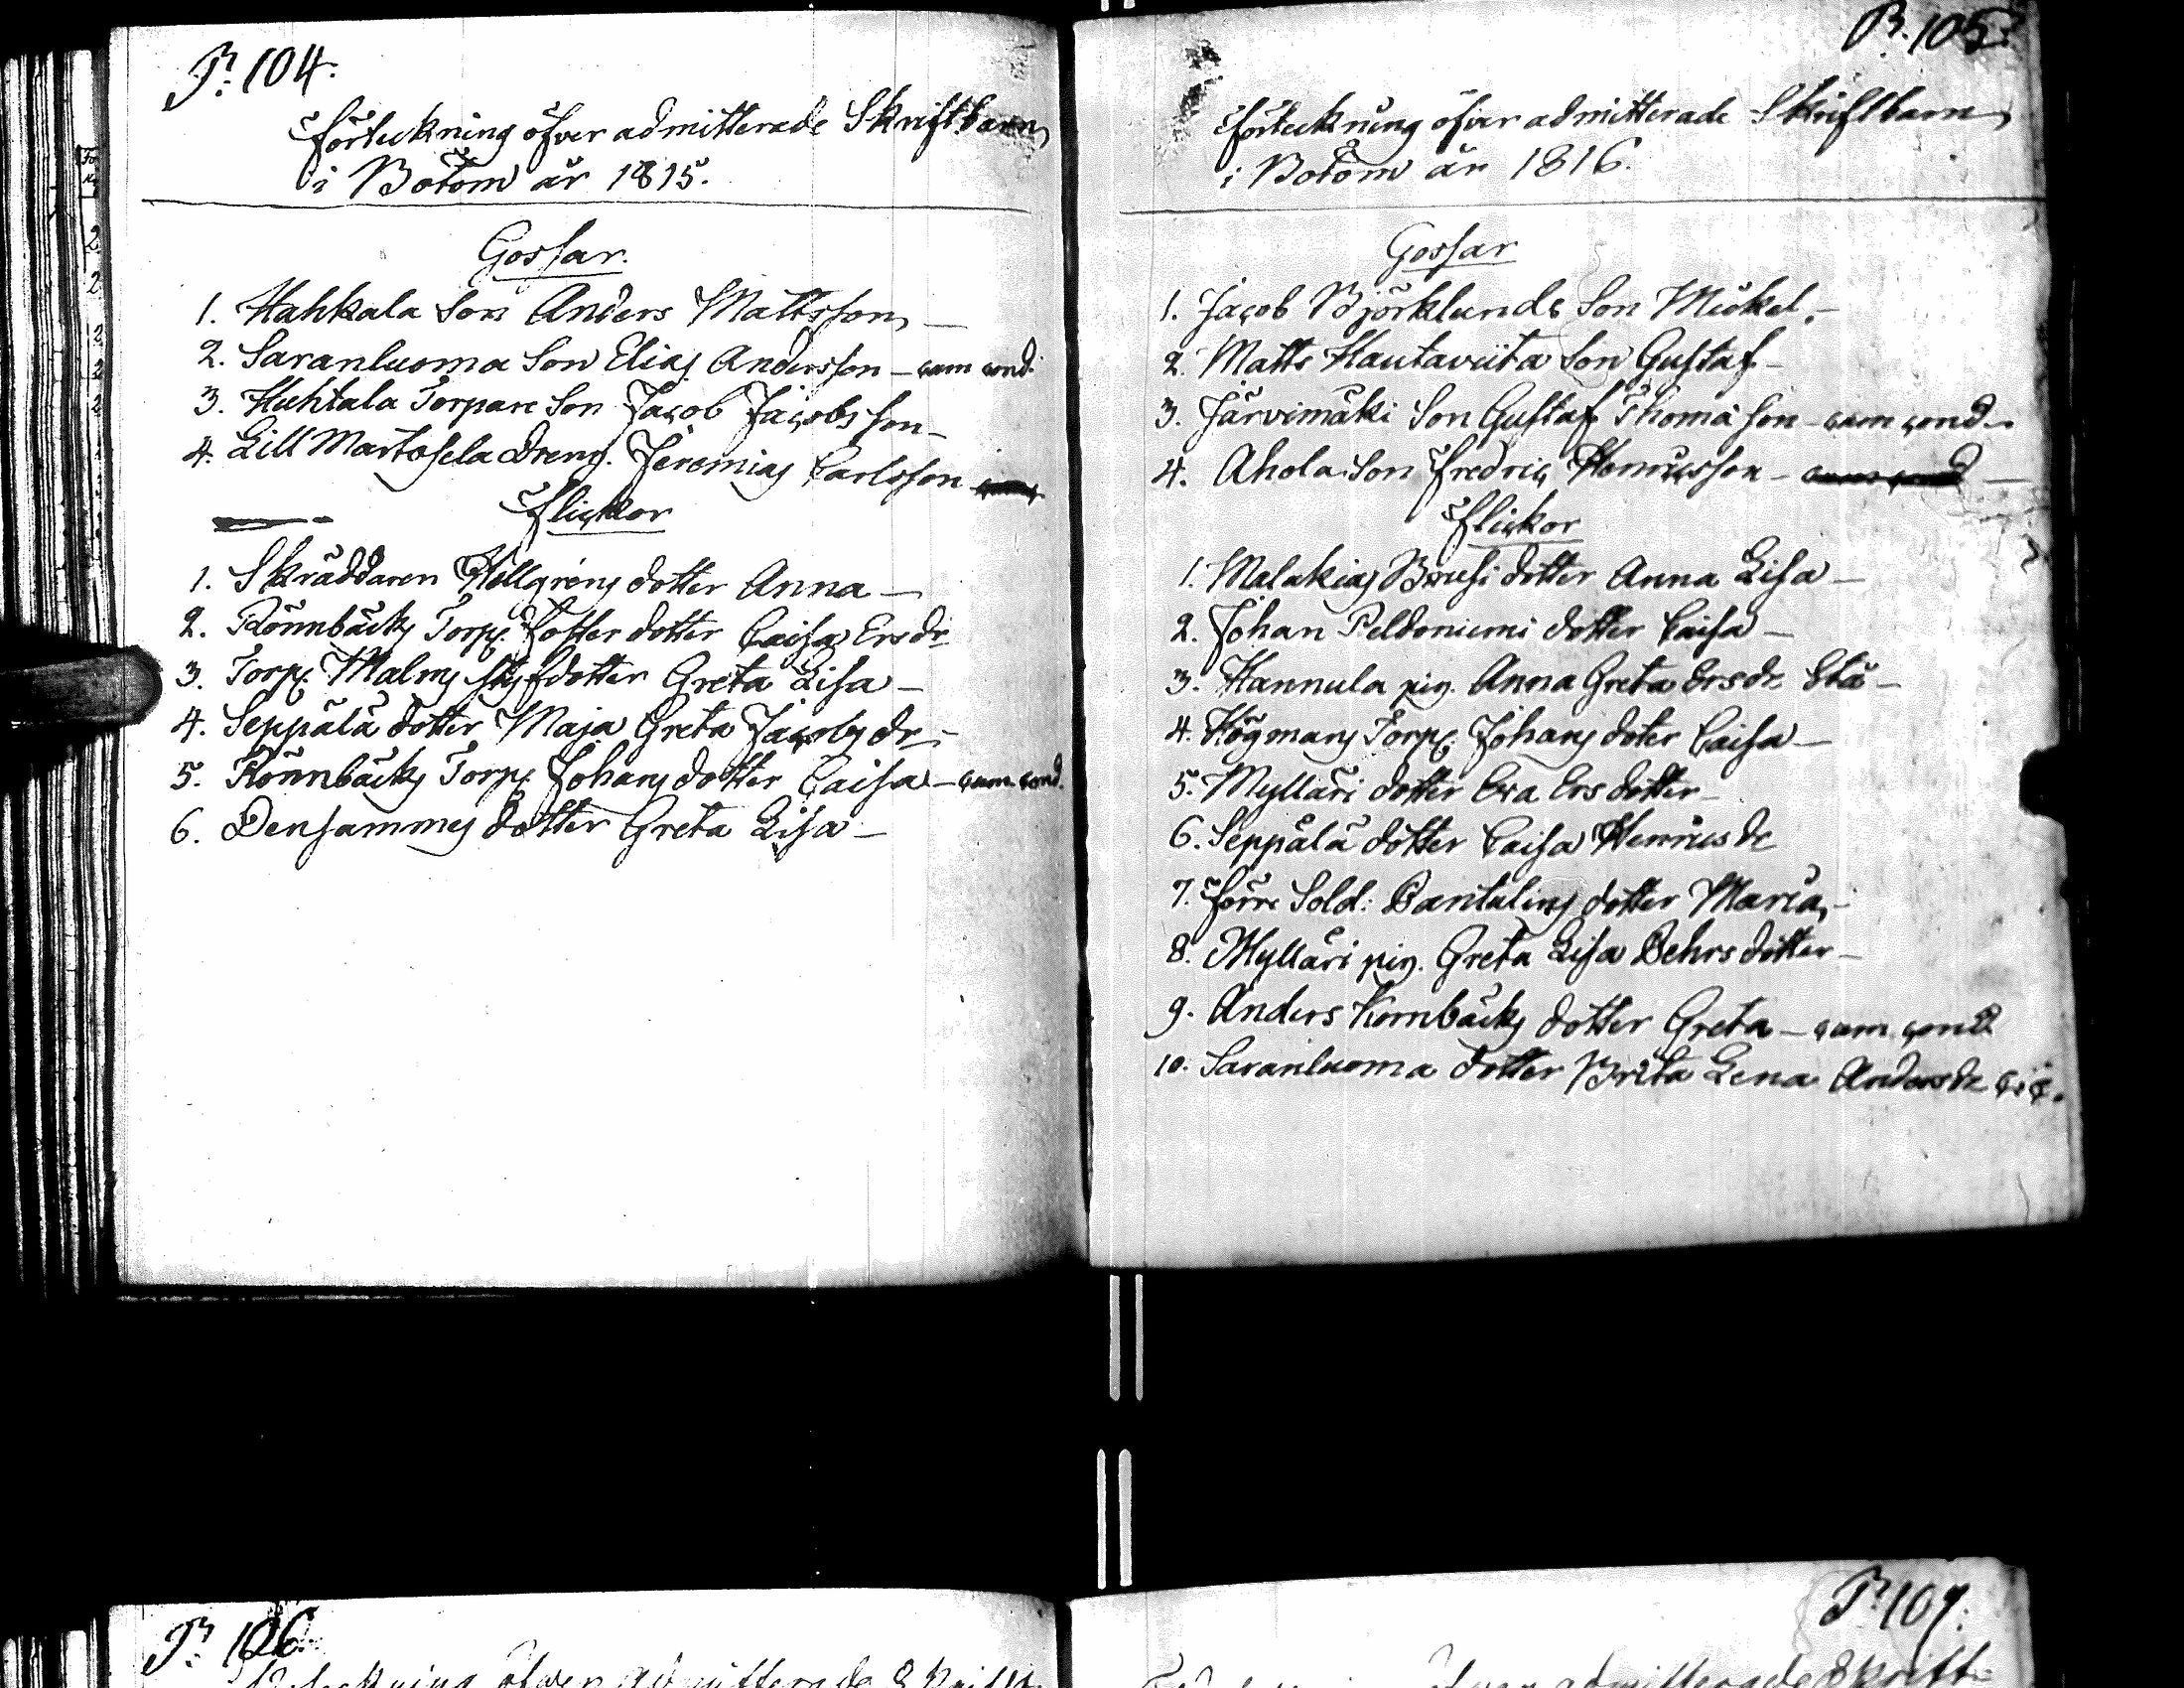 P. 104.
Förteckning öfver admitterade Skriftbarn
i Bötom år 1815.
Gossar.
1. Hahkala Son Anders Mattsson
2. Saranluoma Son Elias Andersson - cum cond.
3. Huhtala Torpare Son Jacob Jacobsson
4. Lill Martosela Dreng. Jeremias Carlsson
Flickor
1. Skräddaren Hellgrens dotter Anna
2. Rönnbäcks Torp. Foster dotter Caisa Ersdr
3. Torp. Malms styfdotter Greta Lisa
4. Seppälä dotter Maja Greta Jacobsdr
5. Rönnbäcks Torp. Johans dotter Caisa - cum cond.
6. Densammes dotter Greta Lisa
P. 105.
Förteckning öfver admitterade Skriftbarn
i Bötom år 1816.
Gossar
1. Jacob Björklunds Son Mickel.
2. Matts Hautaviita Son Gustaf
3. Järvimäki Son Gustaf Thomasson - cum cond.
4. Ahola Son Fredric Henricsson
Flickor
1. Malakias Bruusi dotter Anna Lisa
2. Johan Peldoniemi dotter Caisa
3. Hannula pig. Anna Greta Ersdr
4. Högmans Torp. Johans doter Caisa
5. Mylläri dotter Eva Ersdotter
6. Seppälä dotter Caisa Henricsdr
7. Förre Sold: Dantalins dotter Maria
8. Mylläri pig. Greta Lisa Dehrsdotter
9. Anders Kornbäcks dotter Greta - cum cond
10. Saranluoma dotter Brita Lena Andersdr c. c.
P. 106.
öfver admitterade Skrift
P. 107.
öfver admitterade Skrift-